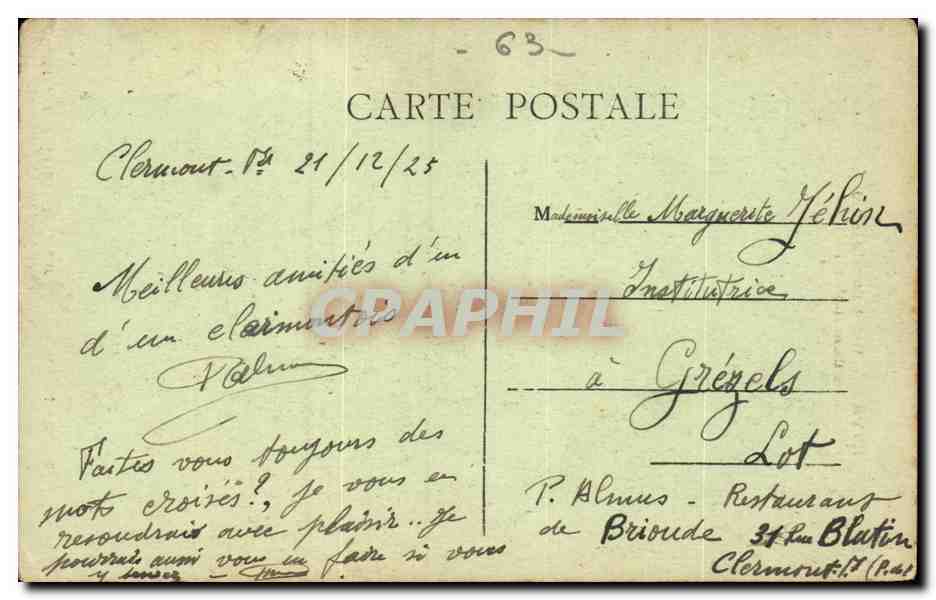 63
CARTE POSTALE
Clermont-Fd 21/12/25
Meilleures amitiés d'un
d'un clairmontois
PAlmus
Faites vous toujours des
mots croisés?, je vous en
resoudrais avec plaisir.. Je
pourrais aussi vous en faire si vous
y
Mademoiselle Marguerite Jéhin
Institutrice
à Grézels
Lot
P. Almus - Restaurant
de Brioude 31 Rue Blatin
Clermont-Fd (P.de
CPAPHIL